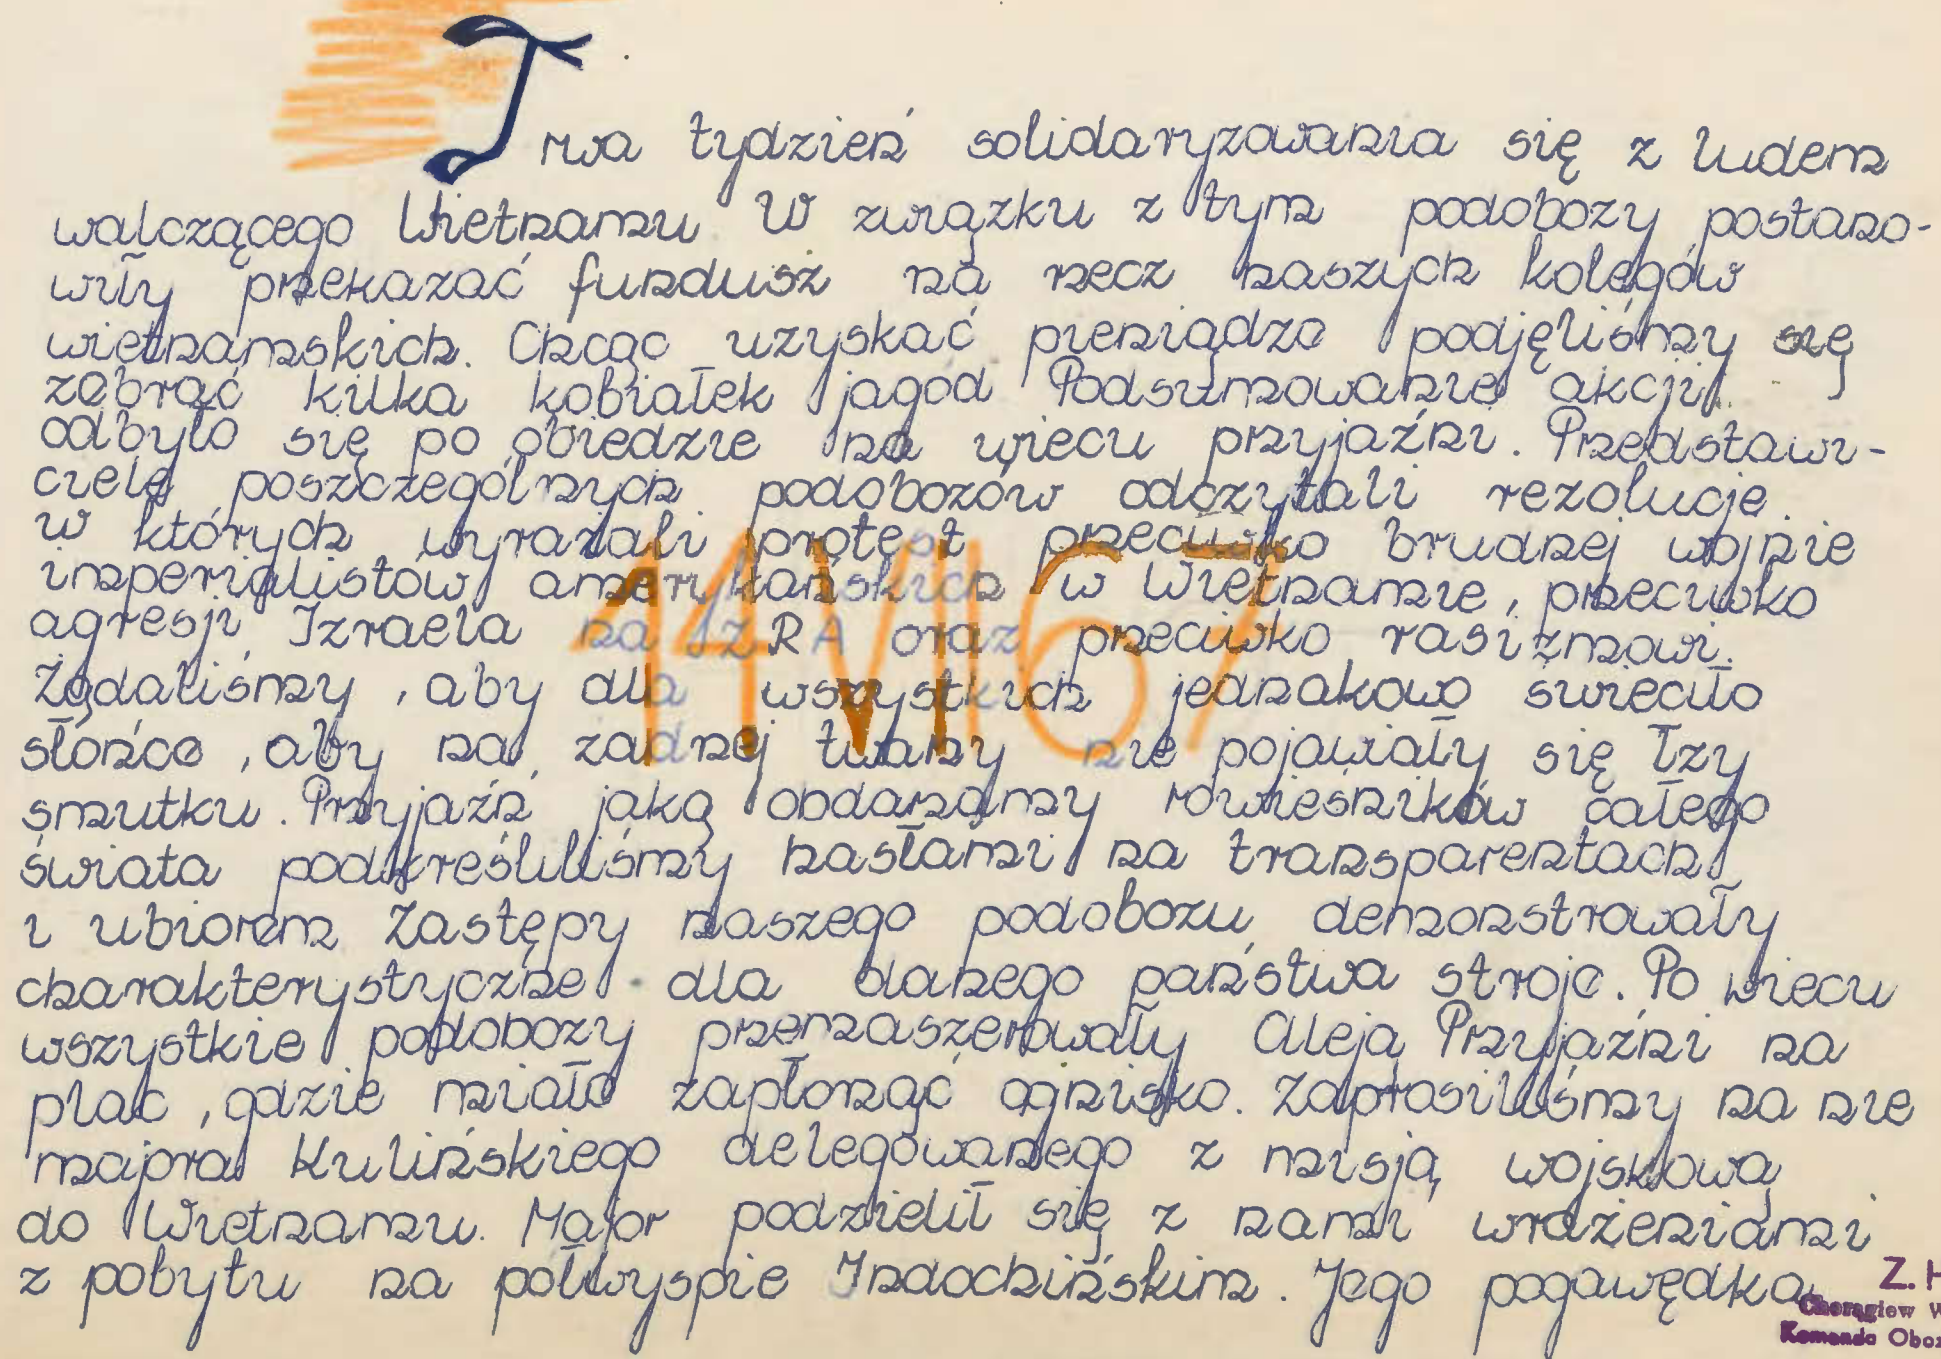 Trwa tydzień solidaryzowania się z ludem
walczącego Wietnamu. W związku z tym podobozy postano-
wiły przekazać fundusz na rzecz naszych kolegów
wietnamskich. Chcąc uzyskać pieniądze podjęliśmy się
zebrać kilka kobiałek jagod Podsumowanie akcji
odbyło się po obiedzie na wiecu przyjaźni. Przedstawi-
ciele poszczególnych podobozów odczytali rezolucje.
w których wyrażali protest przeciwko brudnej wojnie
imperialistów amerykańskich w Wietnamie, przeciwko
agresji Izraela na ZRA oraz przeciwko rasizmowi.
Żądaliśmy, aby dla wszystkich jednakowo świeciło
słońce, aby na żadnej twarzy nie pojawiały się łzy
smutku. Przyjaźń jaką obdarzamy rówieśników całego
świata podkreśliliśmy hasłami na transparentach
i ubiorem Zastępy naszego podobozu demonstrowały
charakterystyczne dla danego państwa stroje. Po wiecu
wszystkie podobozy przemaszerowały Aleją Przyjaźni na
plac, gdzie miało zapłonąć ognisko. Zaprosiliśmy na nie
majora Kulińskiego delegowanego z misją wojskową
do Wietnamu. Major podzielił się z nami wrażeniami
z pobytu na półwyspie Indochińskim. Jego pogawędka
14 VII 67
Z. H
Chorągiew W
Komenda Oboz